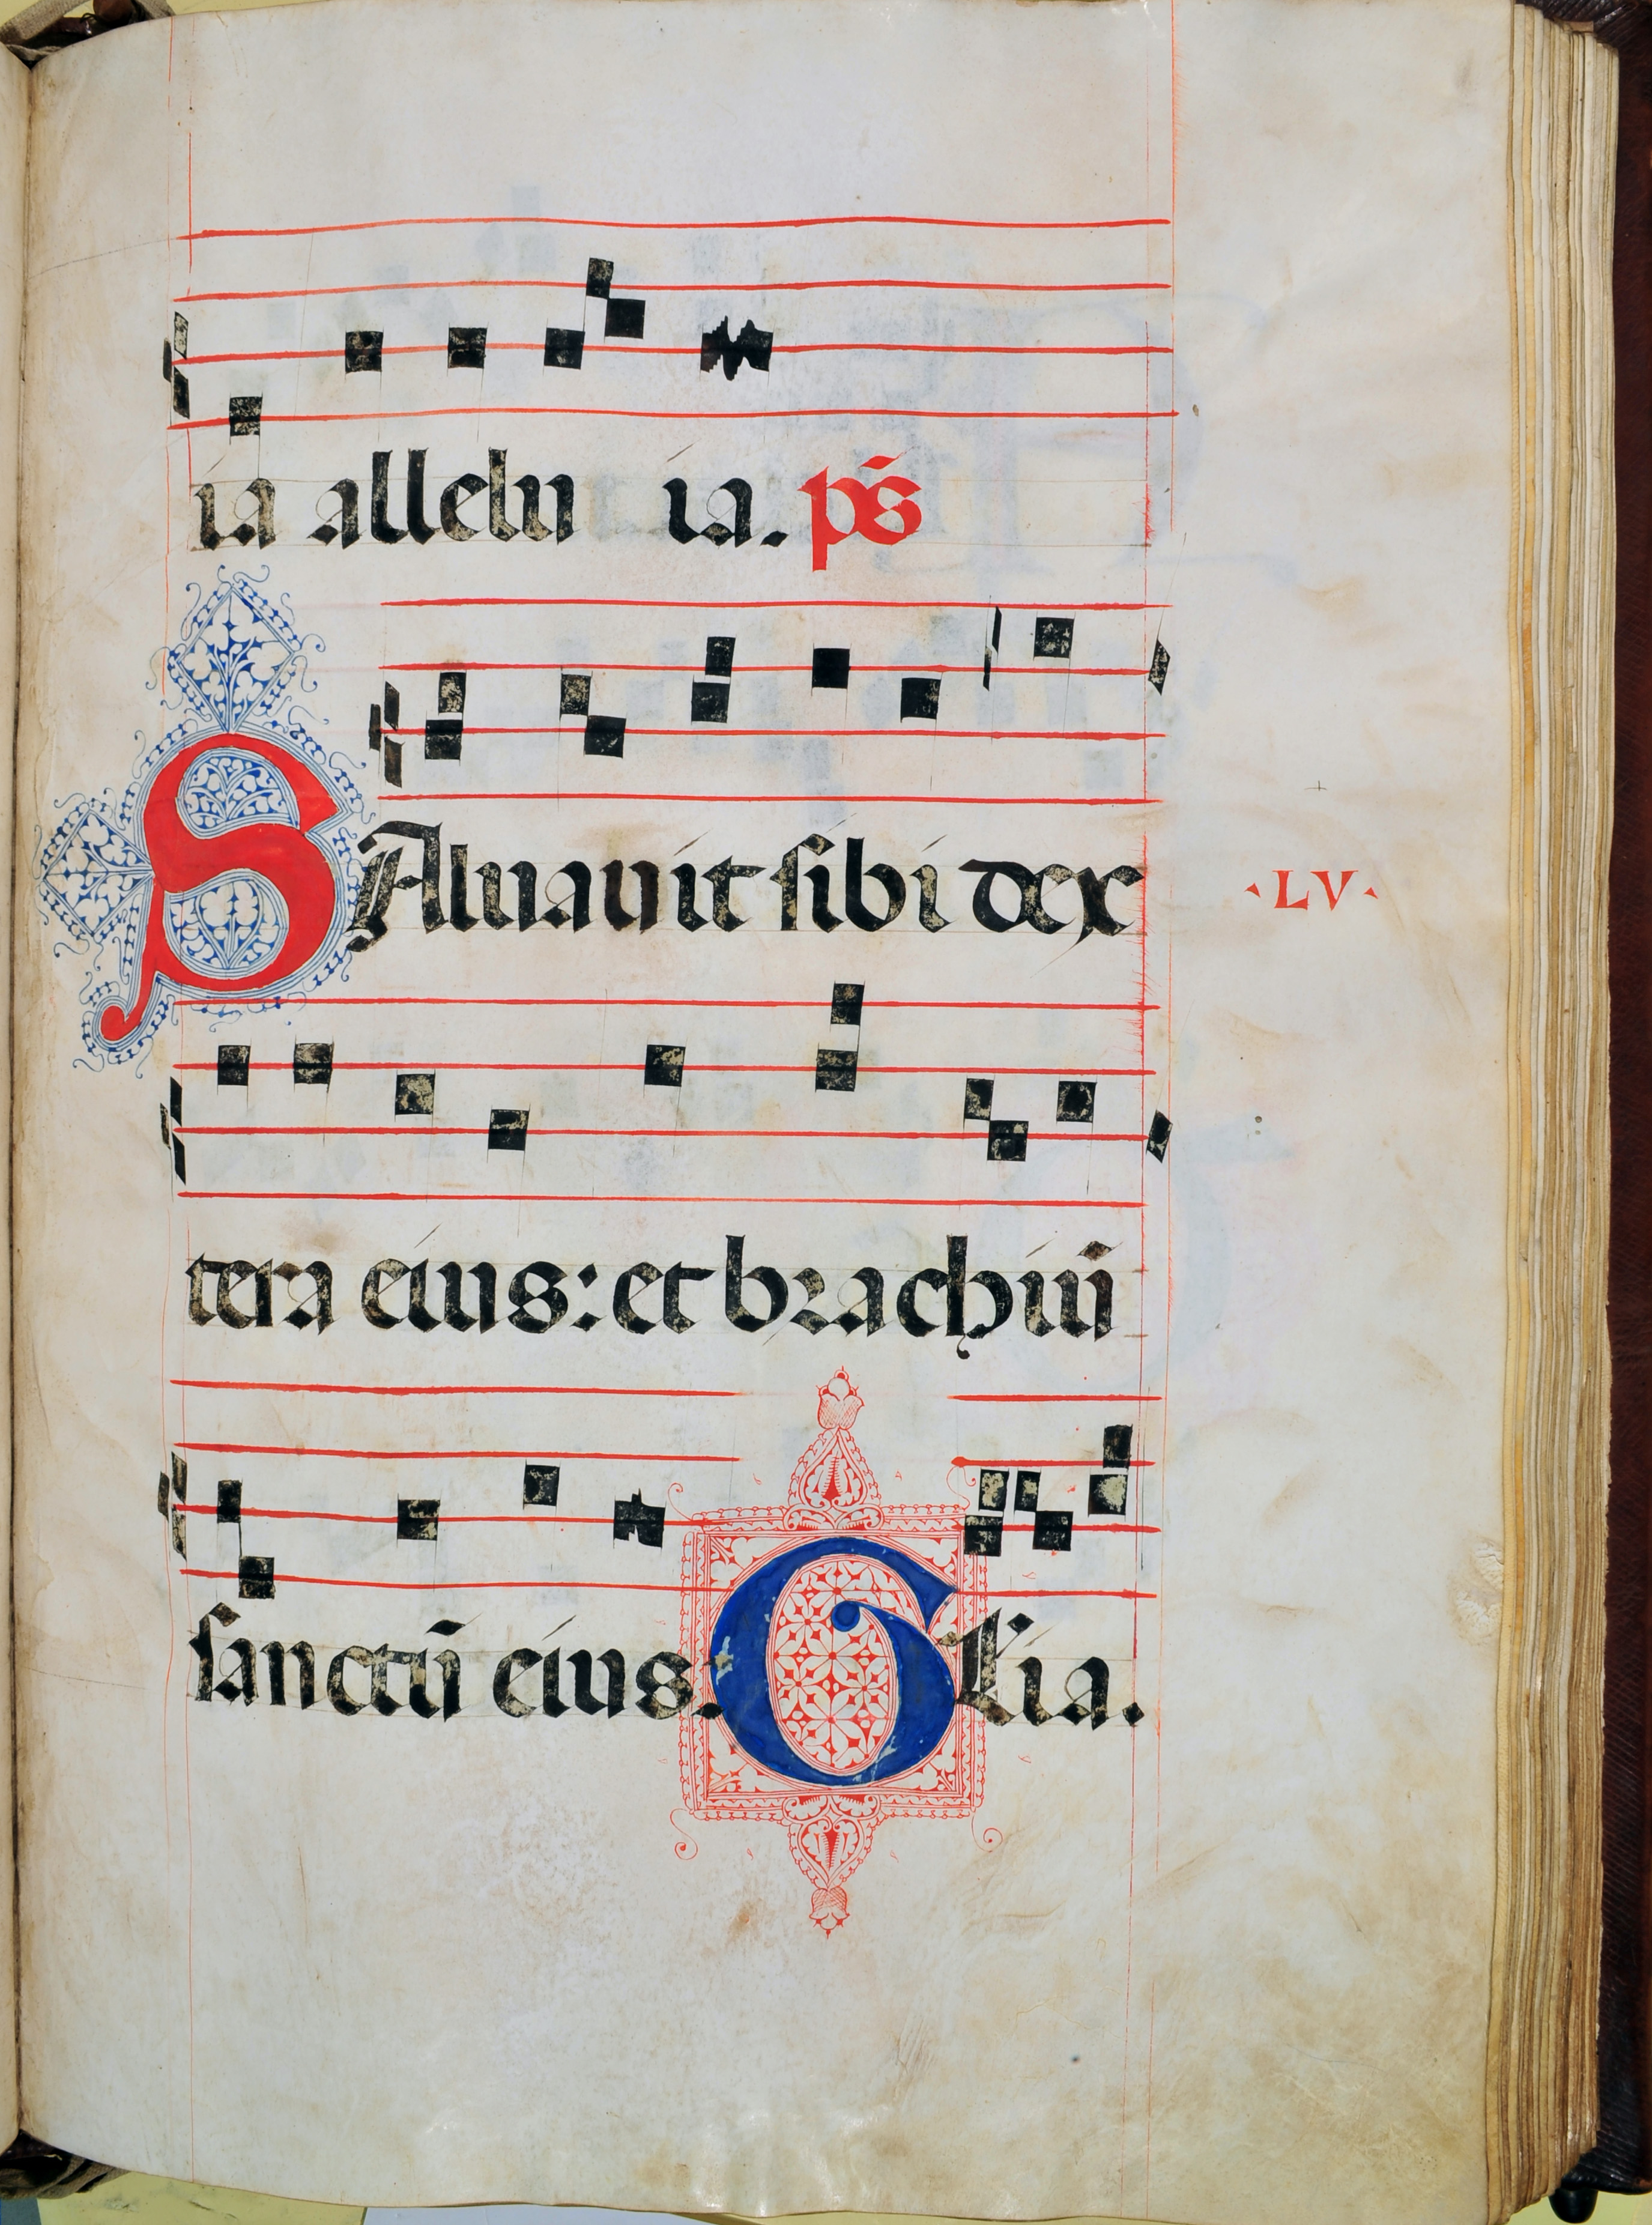 ia alleluia. ps̄
SAluauit sibi dex
·LV·
tera eius: et brachiū
sanctū eius. Glia.